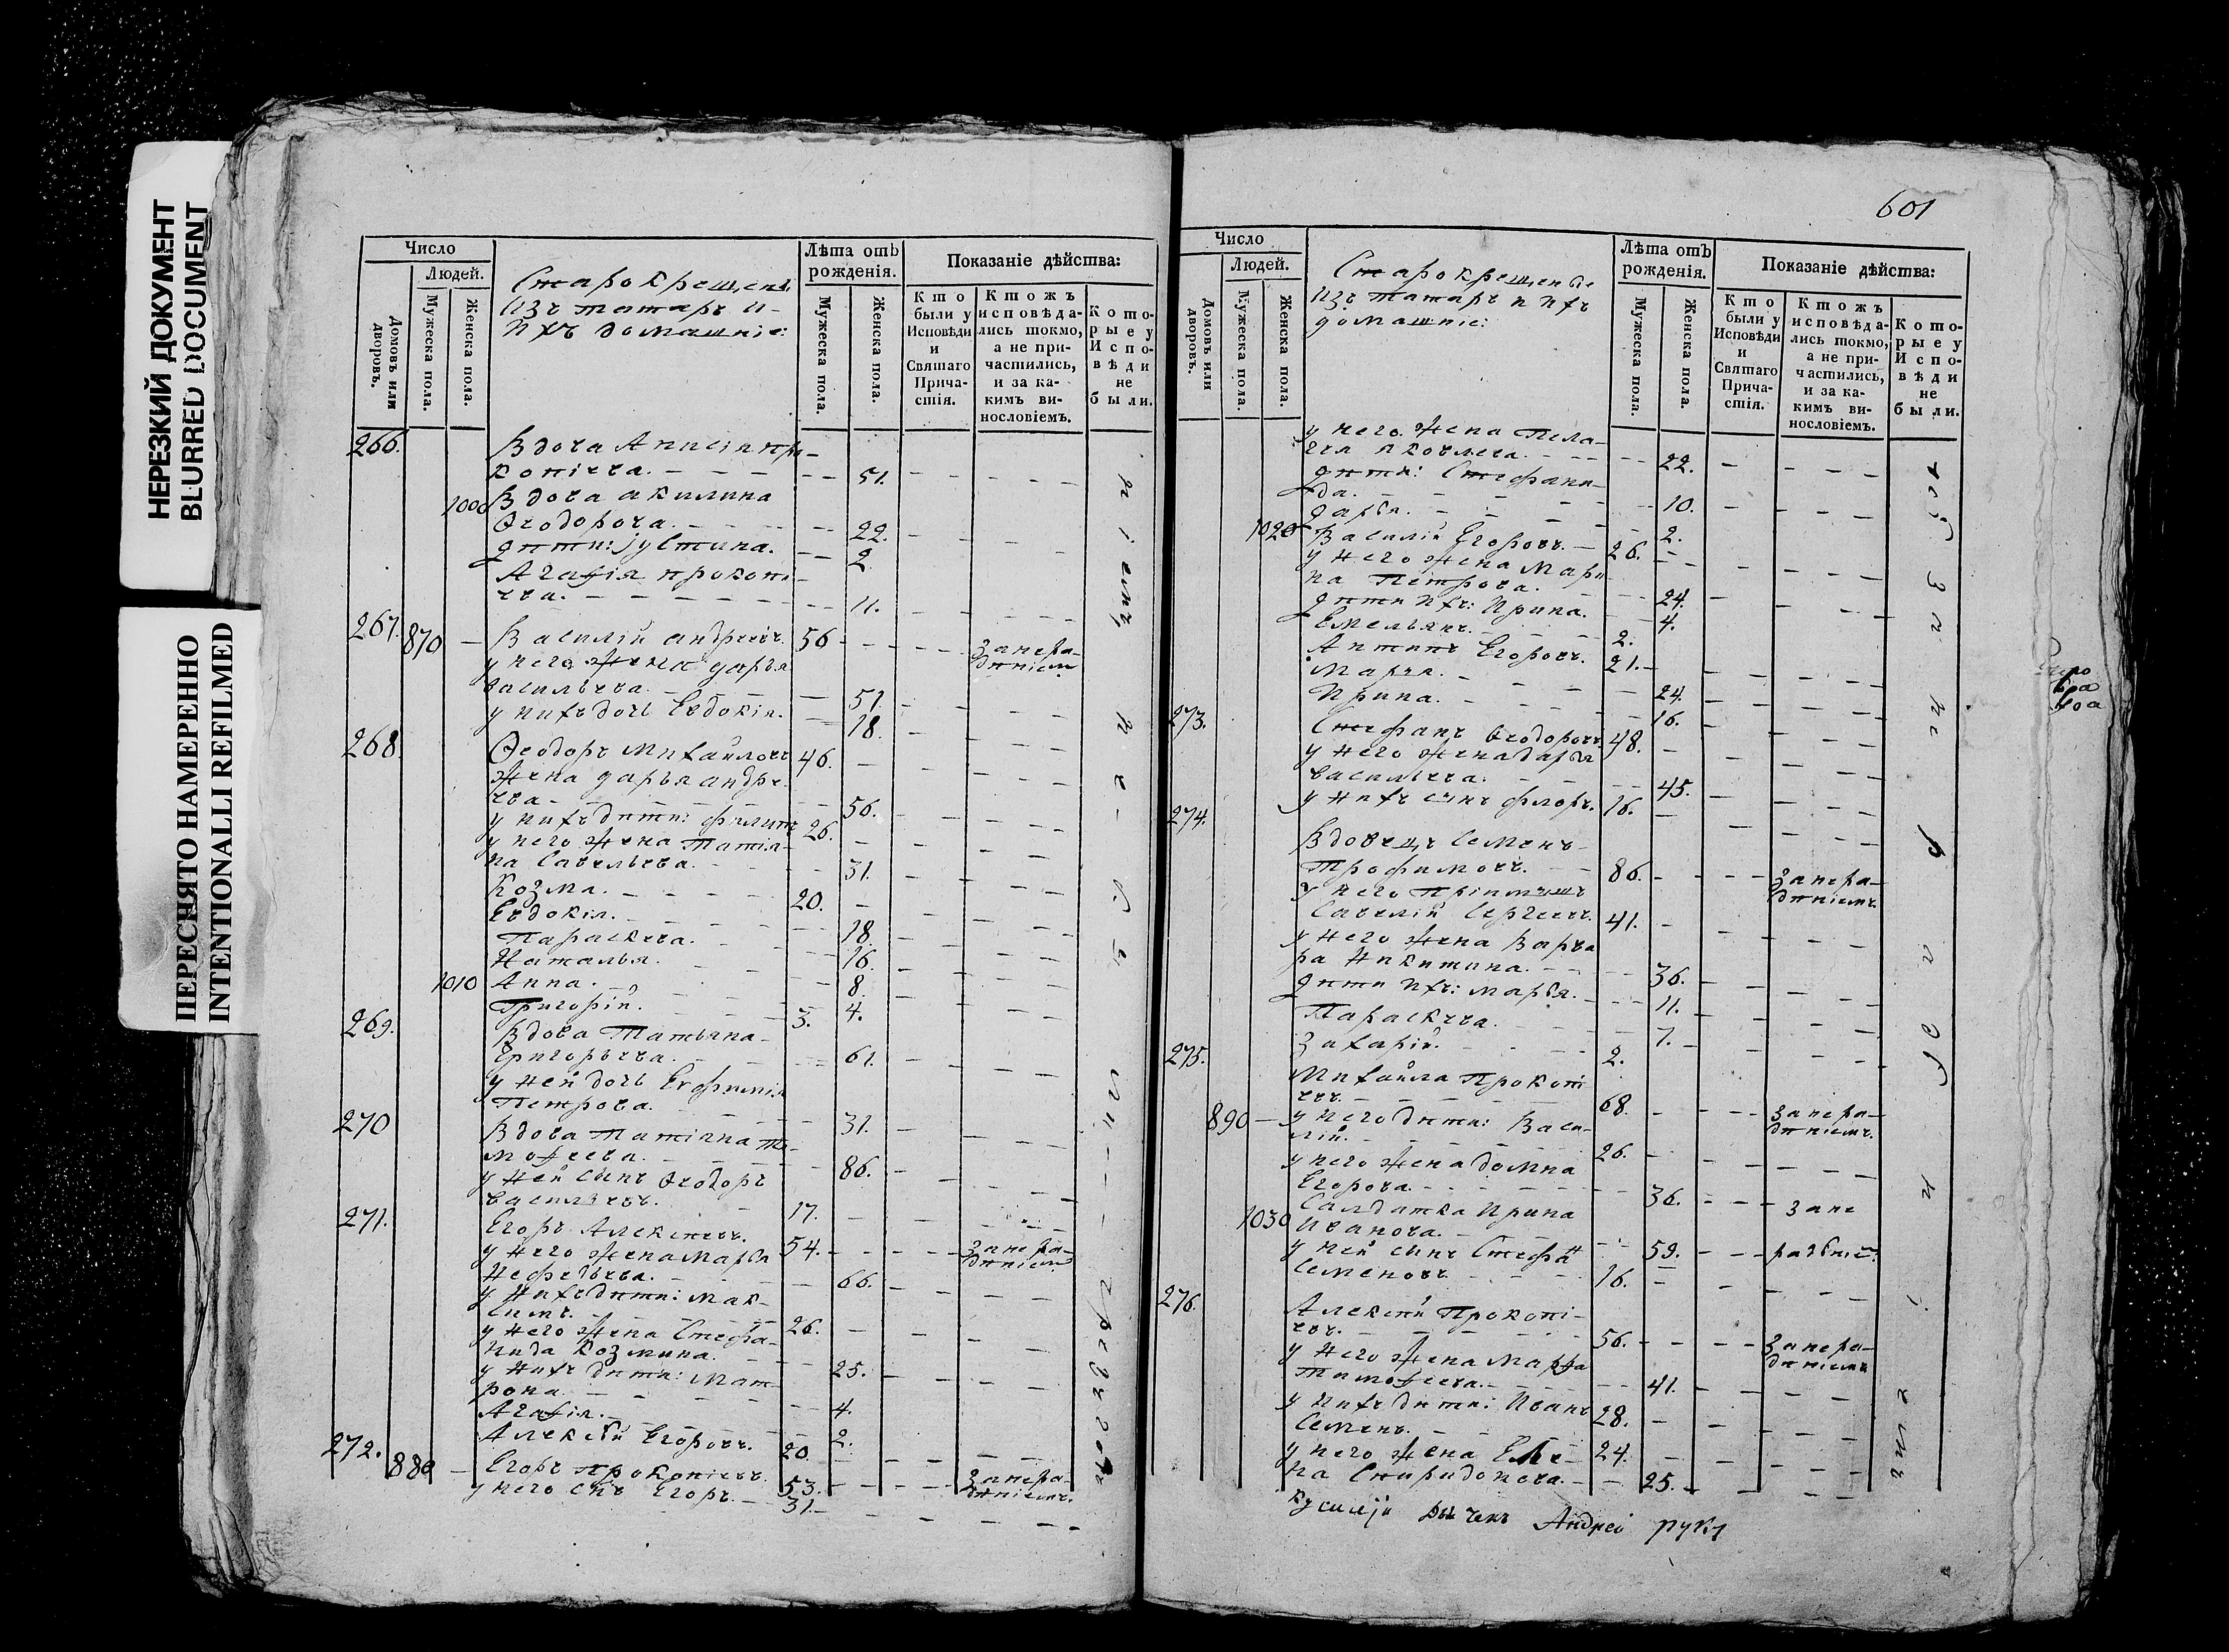 НЕРЕЗКИЙ ДОКУМЕНТ
BLURRED DOCUMENT
ПЕРЕСНЯТО НАМЕРЕННО
INTENTIONALLI REFILMED
Число
Людей.
Домовъ или дворовъ.
Мужеска пола.
Женска пола.
Старокрещены
изъ татаръ и
ихъ домашніе:
Лѣта отъ рожденія.
Мужеска пола.
Женска пола.
Показаніе дѣйства:
Кто были у Исповѣди и Святаго Причастія.
Ктожъ исповѣдались токмо, а не причастились, и за какимъ винословіемъ.
Которые у Исповѣди не были.
266. Вдова Анисіа про-
копіева. 51.
1000 Вдова акилина
Ѳеодорова. 22.
дѣти: іустина. 2
Агафія прокопі-
ева. 11.
267. 870 Василій андреевъ. 56 занера-
у него жена дарья дѣніем
васильева. 51.
у нихъ дочь Евдокія. 18.
268. Ѳеодоръ Михайловъ 46.
жена дарья андре-
ева 56.
у нихъ дѣти: филипъ 26.
у него жена татіа-
на Савельева. 31.
Козма. 20.
Евдокія. 18.
Параскева. 16.
Наталья. 8.
1010 Анна. 4.
Григорій. 3.
269. Вдова Татьяна
Григорьева. 61.
у ней дочь Евфимія
Петрова. 31.
270 Вдова татіяна ти-
мофеева. 86.
у ней сынъ Ѳеодоръ
васильевъ. 17.
271. Егоръ Алексеевъ. 54. занера-
у него жена марья дѣніем
Нефедьева. 66.
у нихъ дѣти: Мак-
симъ. 26.
у него жена Стефа-
нида Козмина. 25.
у нихъ дѣти: Мат-
рона 4.
Агафія. 2.
Алексѣй Егоровъ. 20
272. 880 Егоръ прокопіевъ. 53. занера-
у него снъ Егоръ. 31. дѣніемъ.
601
Число
Людей.
Домовъ или дворовъ.
Мужеска пола.
Женска пола.
Старокрещены
изъ татаръ и ихъ
домашніе:
Лѣта отъ рожденія.
Мужеска пола.
Женска пола.
Показаніе дѣйства:
Кто были у Исповѣди и Святаго Причастія.
Ктожъ исповѣдались токмо, а не причастились, и за какимъ винословіемъ.
Которые у Исповѣди не были.
у него жена Пела-
гея яковлева. 22.
дѣти: Стефани-
да. 10.
дарья. 2.
1020 Василій Егоровъ. 26.
у него жена Мари-
на Петрова. 24.
дѣти ихъ: Ирина. 4.
Емельянъ. 2.
Антипъ Егоровъ. 21.
Марья. 24.
Ирина. 16.
273. Стефанъ Ѳеодоровъ 48.
у него жена дарья
васильева. 45.
у нихъ сынъ флоръ. 16.
274. Вдовецъ Семенъ
трофимовъ. 86. занера-
у него пріимышъ дѣніемъ.
Савелій Сергеевъ. 41.
у него жена Варва
ра Никитина. 36.
дѣти ихъ: марья. 11.
Параскева. 7.
Захарій. 2.
275. Михайла Прокопі
евъ. 68. занера-
890 у него дѣти: Васи- дѣніемъ.
лій. 26.
у него жена домна
Егорова. 36.
1030 Салдатка Ирина зане
Иванова. 59. радѣніе
у ней сынъ Стефан
Семеновъ. 16.
276. Алексѣй Прокопі-
евъ. 56. занера-
у него жена Марфа дѣніемъ
тимофеева. 41.
у нихъ дѣти: Иванъ 28.
Семенъ. 24.
у него жена Еле-
на Спиридонова 25.
Андреі руку